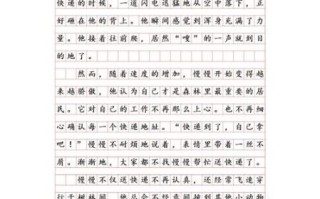 快递的时候，一道闪电迅猛地从空中落下，正
好砸在他的背上。他瞬间感觉到浑身充满了力
量。他接着往前爬，居然“嗖”的一声就到目
的地了。
然而，随着速度的增加，慢慢开始变得越
来越骄傲，他认为自己才是森林里最重要的居
民。它对自己的工作不再那么上心。也不再细
心确认每一个快递地址。“快递到了，自己拿
吧！”慢慢不耐烦地说着，表情里带着一丝不
屑。渐渐地，大家都不找慢慢帮忙送快递了。
慢慢不仅送快递不再认真，还经常飞速穿